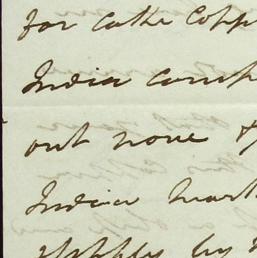 for cake Copp
India comp
out none &
India mark
supply by